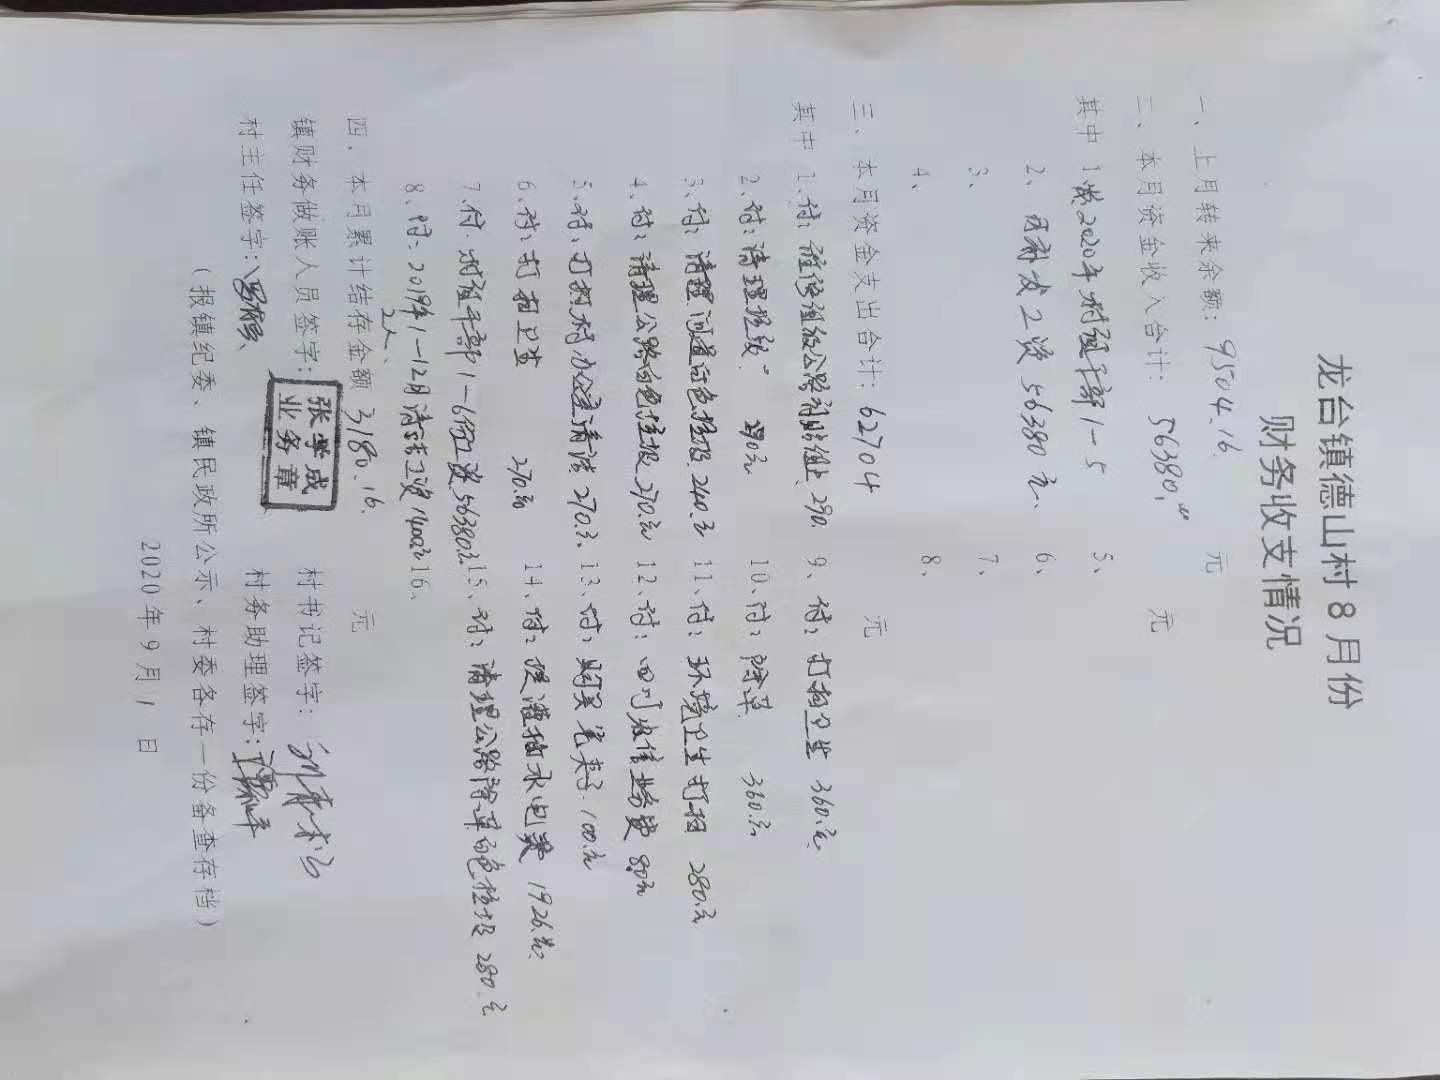 龙台镇德山村8月份
财务收支情况
一、上月转来余额: 9504.16 元
二、本月资金收入合计: 56380.00 元
其中 1、 2020年村组干部1-5 5、
2、 发工资56380元、 6、
3、 7、
4、 8、
三、本月资金支出合计: 62704 元
其中 1、付: 公路 290 9、付: 打扫卫生 360元
2、付: 清理垃圾 290元 10、付: 除草 360元
3、付: 清理河道白色垃圾 240元 11、付: 环境卫生打扫 280元
4、付: 清理公路白色垃圾 270元 12、付: 四川 信业务费 80元
5、付: 打扫村办公室清洁 270元 13、付: 购买 100元
6、付: 打扫卫生 270元 14、付: 提灌抽水电费 1926元
7、付: 村组干部1-6月工资 56380元 15、付: 清理公路除草白色垃圾 280元
8、付: 2019年1-12月清洁工资 1400元 16、
2人、
四、本月累计结存金额 3180.16 元
镇财务做账人员签字: 张学成 业务章 村书记签字:
村主任签字: 村务助理签字:
(报镇纪委、镇民政所公示、村委各存一份备查存档)
2020年9月1日